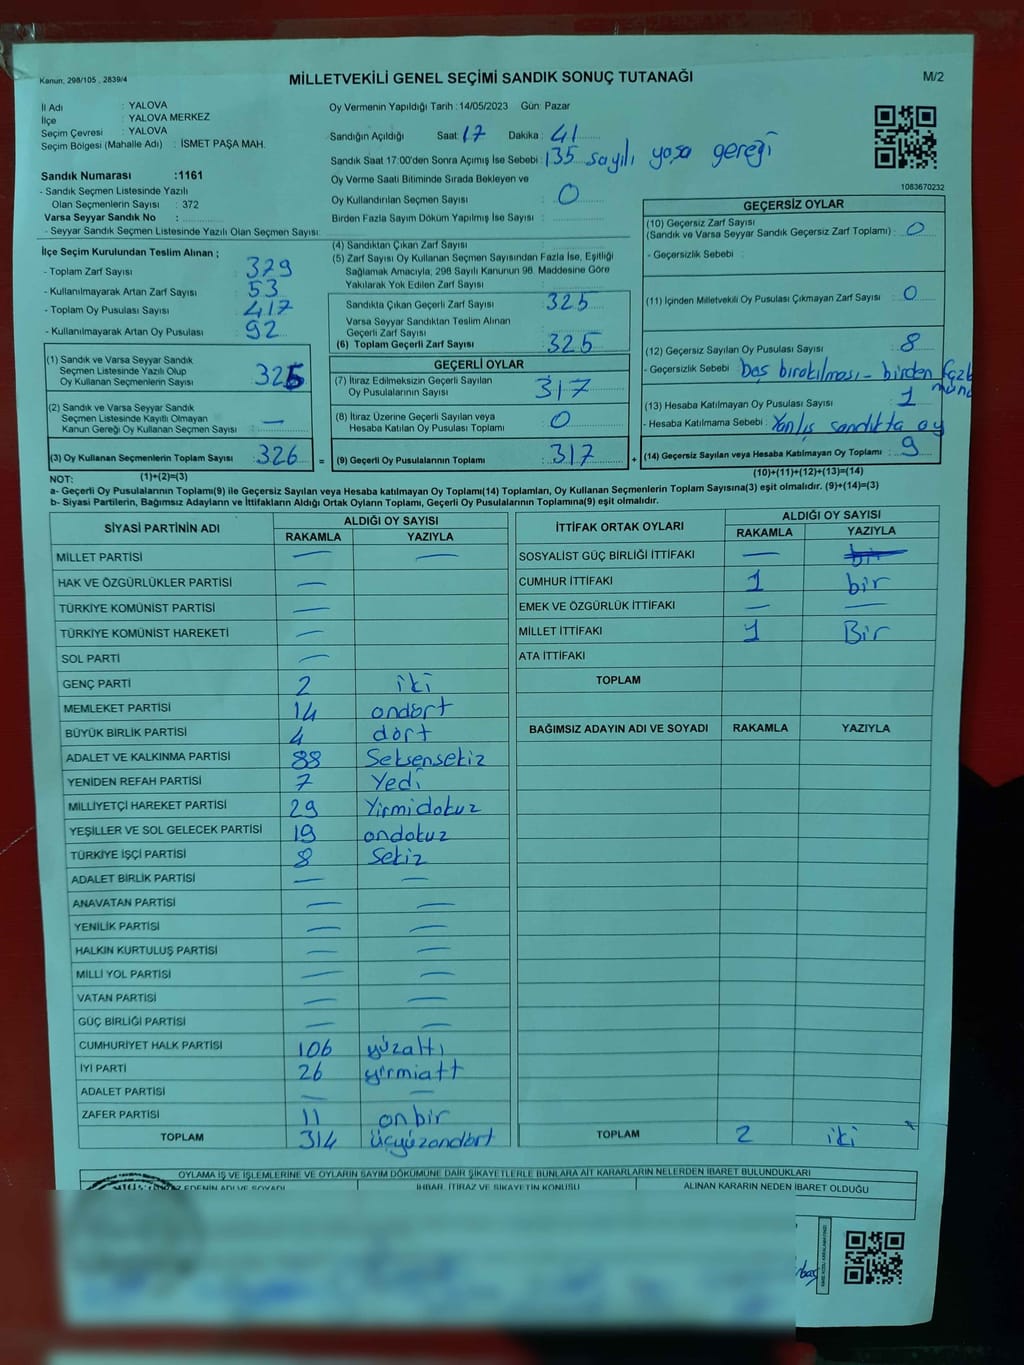 Kanun, 298/105 , 2839/4
MİLLETVEKİLİ GENEL SEÇİMİ SANDIK SONUÇ TUTANAĞI
M/2
İl Adı : YALOVA
İlçe : YALOVA MERKEZ
Seçim Çevresi : YALOVA
Seçim Bölgesi (Mahalle Adı) : İSMET PAŞA MAH.
Sandık Numarası :1161
- Sandık Seçmen Listesinde Yazılı
Olan Seçmenlerin Sayısı : 372
Varsa Seyyar Sandık No :
- Seyyar Sandık Seçmen Listesinde Yazılı Olan Seçmen Sayısı:
Oy Vermenin Yapıldığı Tarih :14/05/2023 Gün: Pazar
Sandığın Açıldığı Saat: 17 Dakika : 41
Sandık Saat 17:00'den Sonra Açımış İse Sebebi : 135 sayılı yasa gereği
Oy Verme Saati Bitiminde Sırada Bekleyen ve
Oy Kullandırılan Seçmen Sayısı : 0
Birden Fazla Sayım Döküm Yapılmış İse Sayısı :
1083670232
İlçe Seçim Kurulundan Teslim Alınan ;
- Toplam Zarf Sayısı : 379
- Kullanılmayarak Artan Zarf Sayısı : 53
- Toplam Oy Pusulası Sayısı : 417
- Kullanılmayarak Artan Oy Pusulası : 92
(1) Sandık ve Varsa Seyyar Sandık
Seçmen Listesinde Yazılı Olup
Oy Kullanan Seçmenlerin Sayısı : 325
(2) Sandık ve Varsa Seyyar Sandık
Seçmen Listesinde Kayıtlı Olmayan
Kanun Gereği Oy Kullanan Seçmen Sayısı : —
(3) Oy Kullanan Seçmenlerin Toplam Sayısı : 326 =
(1)+(2)=(3)
(4) Sandıktan Çıkan Zarf Sayısı :
(5) Zarf Sayısı Oy Kullanan Seçmen Sayısından Fazla İse, Eşitliği
Sağlamak Amacıyla, 298 Sayılı Kanunun 98. Maddesine Göre
Yakılarak Yok Edilen Zarf Sayısı :
Sandıkta Çıkan Geçerli Zarf Sayısı : 325
Varsa Seyyar Sandıktan Teslim Alınan
Geçerli Zarf Sayısı :
(6) Toplam Geçerli Zarf Sayısı : 325
GEÇERLİ OYLAR
(7) İtiraz Edilmeksizin Geçerli Sayılan
Oy Pusulalarının Sayısı : 317
(8) İtiraz Üzerine Geçerli Sayılan veya
Hesaba Katılan Oy Pusulası Toplamı : 0
(9) Geçerli Oy Pusulalarının Toplamı : 317 +
GEÇERSİZ OYLAR
(10) Geçersiz Zarf Sayısı
(Sandık ve Varsa Seyyar Sandık Geçersiz Zarf Toplamı) : 0
- Geçersizlik Sebebi :
(11) İçinden Milletvekili Oy Pusulası Çıkmayan Zarf Sayısı : 0
(12) Geçersiz Sayılan Oy Pusulası Sayısı : 8
- Geçersizlik Sebebi : boş bırakılması - birden fazla
(13) Hesaba Katılmayan Oy Pusulası Sayısı : 1
- Hesaba Katılmama Sebebi : Yanlış sandıkta oy
(14) Geçersiz Sayılan veya Hesaba Katılmayan Oy Toplamı : 9
(10)+(11)+(12)+(13)=(14)
NOT:
a- Geçerli Oy Pusulalarının Toplamı(9) ile Geçersiz Sayılan veya Hesaba katılmayan Oy Toplamı(14) Toplamları, Oy Kullanan Seçmenlerin Toplam Sayısına(3) eşit olmalıdır. (9)+(14)=(3)
b- Siyasi Partilerin, Bağımsız Adayların ve İttifakların Aldığı Ortak Oyların Toplamı, Geçerli Oy Pusulalarının Toplamına(9) eşit olmalıdır.
SİYASİ PARTİNİN ADI ALDIĞI OY SAYISI
RAKAMLA YAZIYLA
MİLLET PARTİSİ — —
HAK VE ÖZGÜRLÜKLER PARTİSİ —
TÜRKİYE KOMÜNİST PARTİSİ —
TÜRKİYE KOMÜNİST HAREKETİ —
SOL PARTİ —
GENÇ PARTİ 2 iki
MEMLEKET PARTİSİ 14 ondört
BÜYÜK BİRLİK PARTİSİ 4 dört
ADALET VE KALKINMA PARTİSİ 88 Seksensekiz
YENİDEN REFAH PARTİSİ 7 Yedi
MİLLİYETÇİ HAREKET PARTİSİ 29 Yirmidokuz
YEŞİLLER VE SOL GELECEK PARTİSİ 19 ondokuz
TÜRKİYE İŞÇİ PARTİSİ 8 Sekiz
ADALET BİRLİK PARTİSİ — —
ANAVATAN PARTİSİ — —
YENİLİK PARTİSİ — —
HALKIN KURTULUŞ PARTİSİ — —
MİLLİ YOL PARTİSİ — —
VATAN PARTİSİ — —
GÜÇ BİRLİĞİ PARTİSİ — —
CUMHURİYET HALK PARTİSİ 106 yüzaltı
İYİ PARTİ 26 yirmialtı
ADALET PARTİSİ — —
ZAFER PARTİSİ 11 onbir
TOPLAM 314 üçyüzondört
İTTİFAK ORTAK OYLARI ALDIĞI OY SAYISI
RAKAMLA YAZIYLA
SOSYALİST GÜÇ BİRLİĞİ İTTİFAKI — bir
CUMHUR İTTİFAKI 1 bir
EMEK VE ÖZGÜRLÜK İTTİFAKI — —
MİLLET İTTİFAKI 1 Bir
ATA İTTİFAKI
TOPLAM
BAĞIMSIZ ADAYIN ADI VE SOYADI RAKAMLA YAZIYLA
TOPLAM 2 iki
OYLAMA İŞ VE İŞLEMLERİNE VE OYLARIN SAYIM DÖKÜMÜNE DAİR ŞİKAYETLERLE BUNLARA AİT KARARLARIN NELERDEN İBARET BULUNDUKLARI
EDENİN ADI VE SOYADI İHBAR, İTİRAZ VE ŞİKAYETİN KONUSU ALINAN KARARIN NEDEN İBARET OLDUĞU